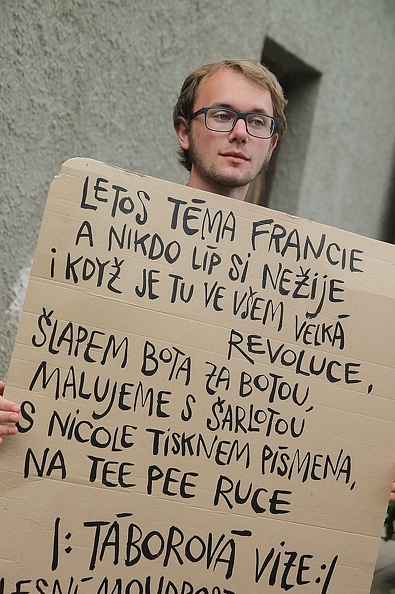 LETOS TÉMA FRANCIE
A NIKDO LÍP SI NEŽIJE
i KDYŽ JE TU VE VŠEM VELKÁ
REVOLUCE,
ŠLAPEM BOTA ZA BOTOU,
MALUJEME S ŠARLOTOU
S NICOLE TISKNEM PÍSMENA,
NA TEE PEE RUCE
|: TÁBOROVÁ VIZE :|
LESNÍ